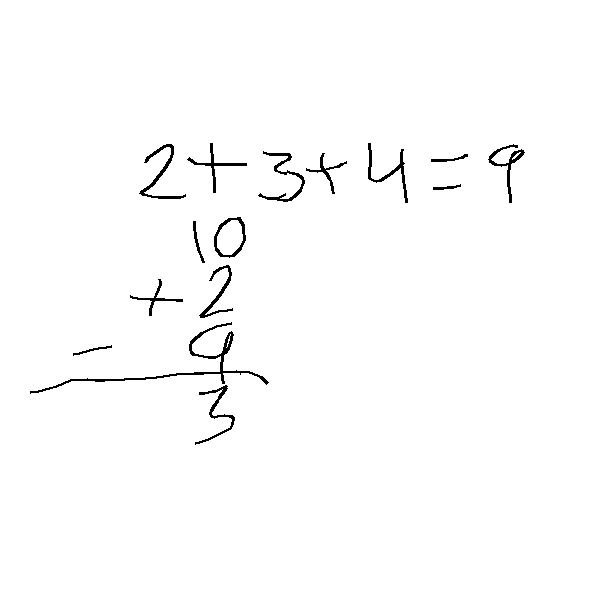 2+3+4=9
10
+ 2
- 9
3